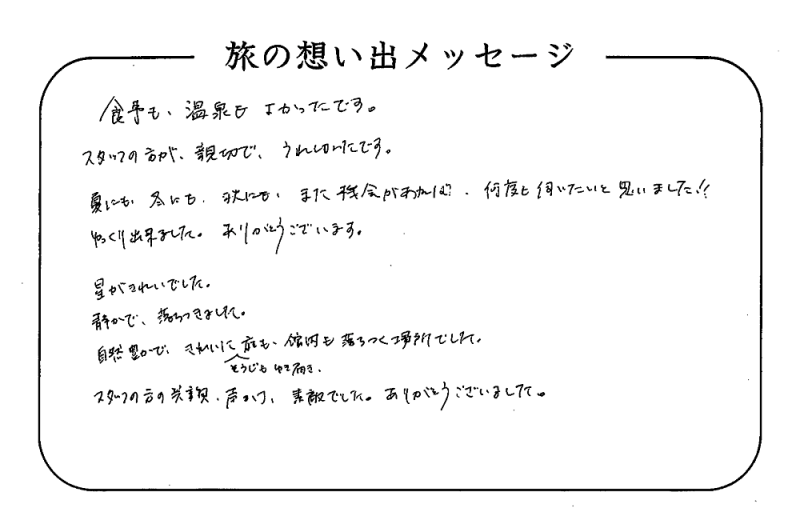 旅の想い出メッセージ
食事も、温泉も よかったです。
スタッフの方が、親切で、うれしかったです。
夏にも、冬にも、秋にも、また機会があれば、何度も伺いたいと思いました!!
ゆっくり出来ました。ありがとうございます。
星がきれいでした。
静かで、落ちつきました。
自然豊かで、きれいに 庭も、館内も 落ちつく場所でした。
そうじも ゆき届き、
スタッフの方の笑顔、声かけ、素敵でした。ありがとうございました。